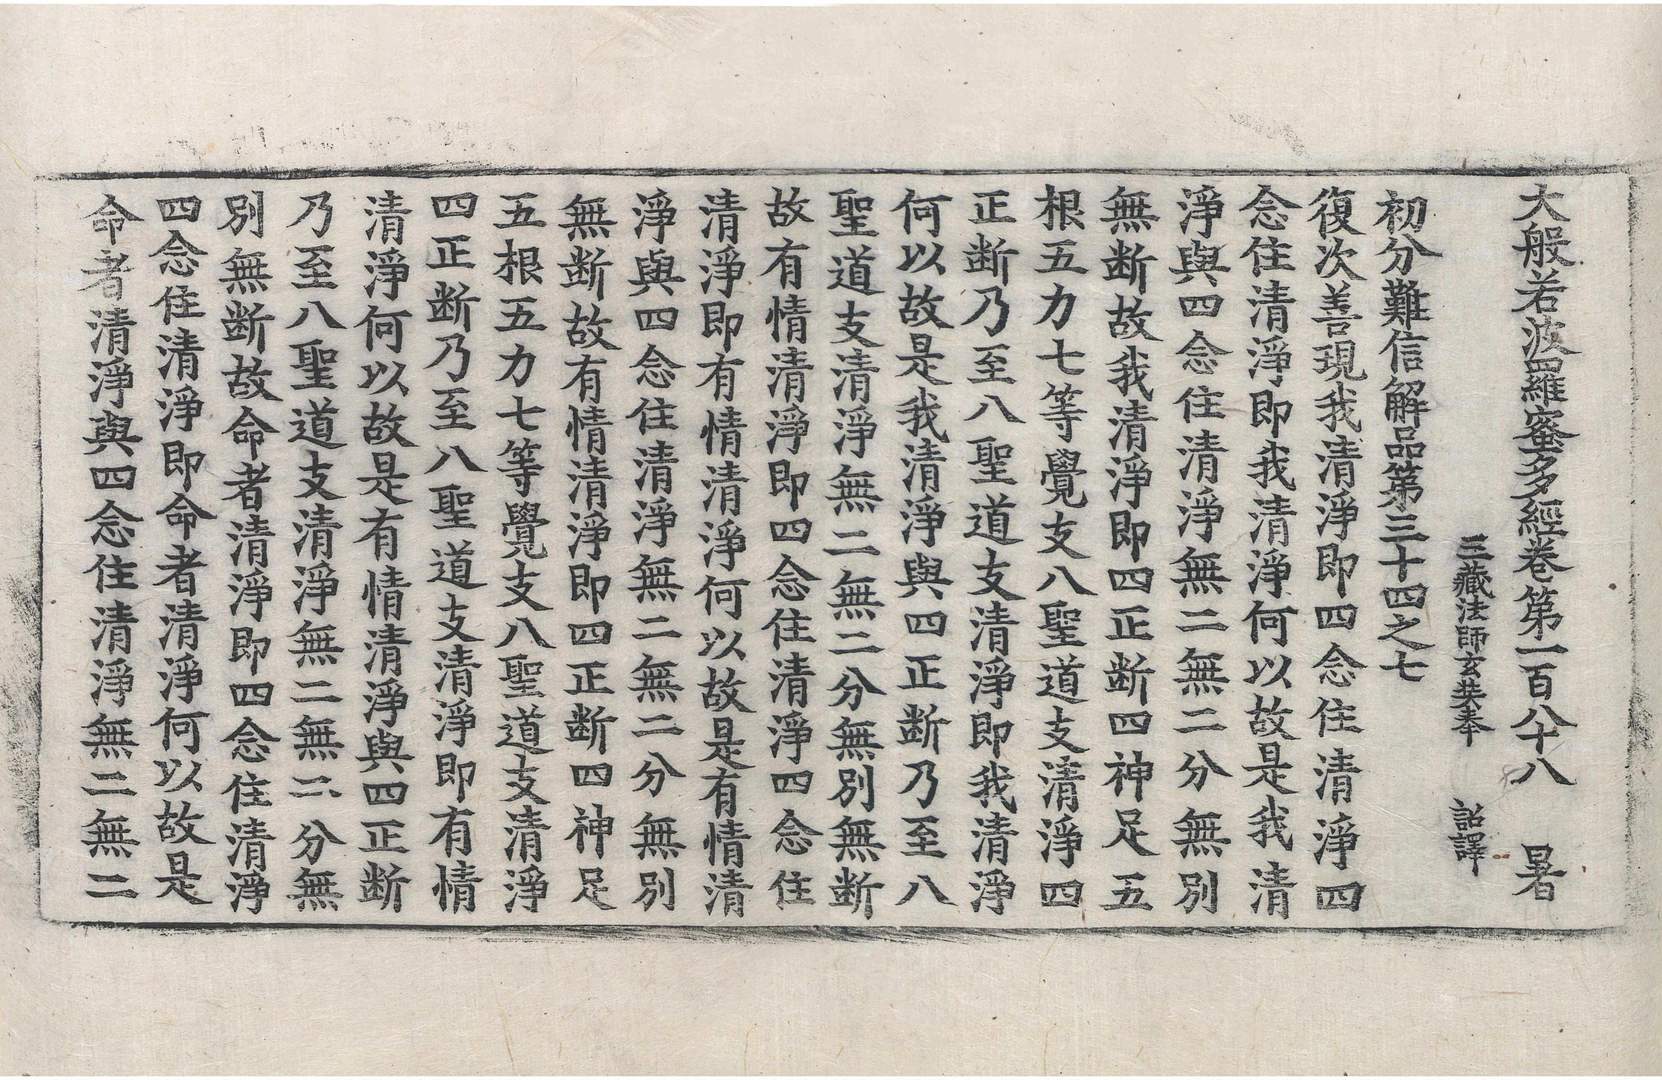 大般若波羅蜜多經卷第一百八十八 暑
三藏法師玄奘奉 詔譯
初分難信解品第三十四之七
復次善現我清淨即四念住清淨四
念住清淨即我清淨何以故是我清
淨與四念住清淨無二無二分無別
無断故我清淨即四正断四神足五
根五力七等覺支八聖道支清淨四
正断乃至八聖道支清淨即我清淨
何以故是我清淨與四正断乃至八
聖道支清淨無二無二分無別無断
故有情清淨即四念住清淨四念住
清淨即有情清淨何以故是有情清
淨與四念住清淨無二無二分無別
無断故有情清淨即四正断四神足
五根五力七等覺支八聖道支清淨
四正断乃至八聖道支清淨即有情
清淨何以故是有情清淨與四正断
乃至八聖道支清淨無二無二分無
別無断故命者清淨即四念住清淨
四念住清淨即命者清淨何以故是
命者清淨與四念住清淨無二無二